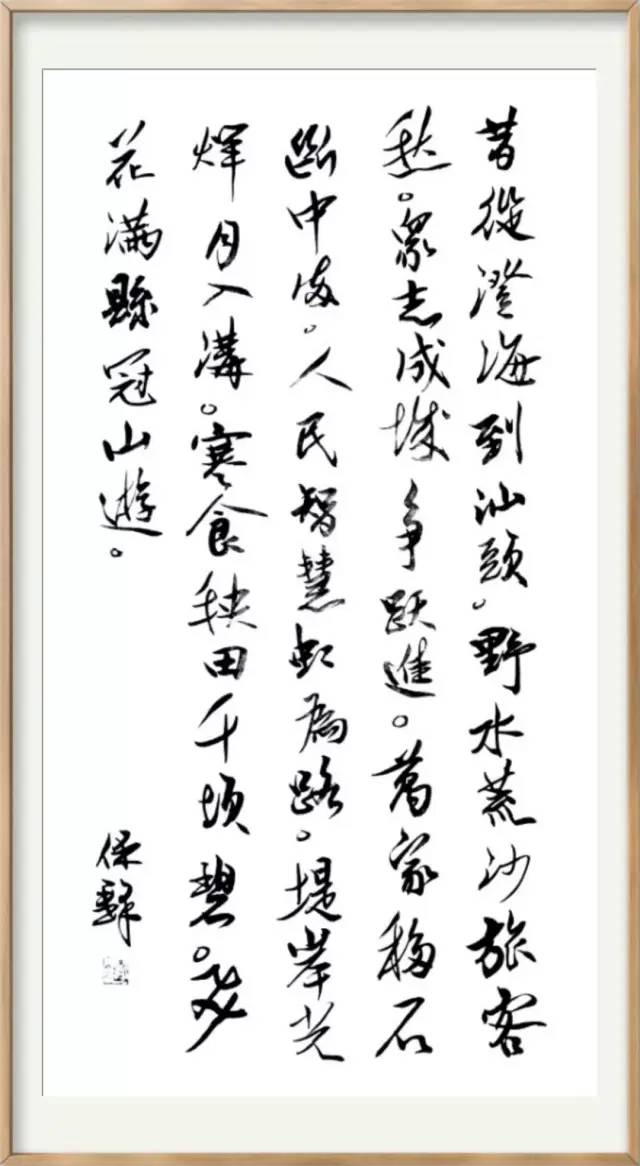 昔從澄海到汕頭。野水荒沙旅客
愁。眾志成城争跃進。萬家移石
断中流。人民智慧虹為路。堤岸光
煇月入溝。寒食秧田千頃碧。
花滿縣冠山遊。
保